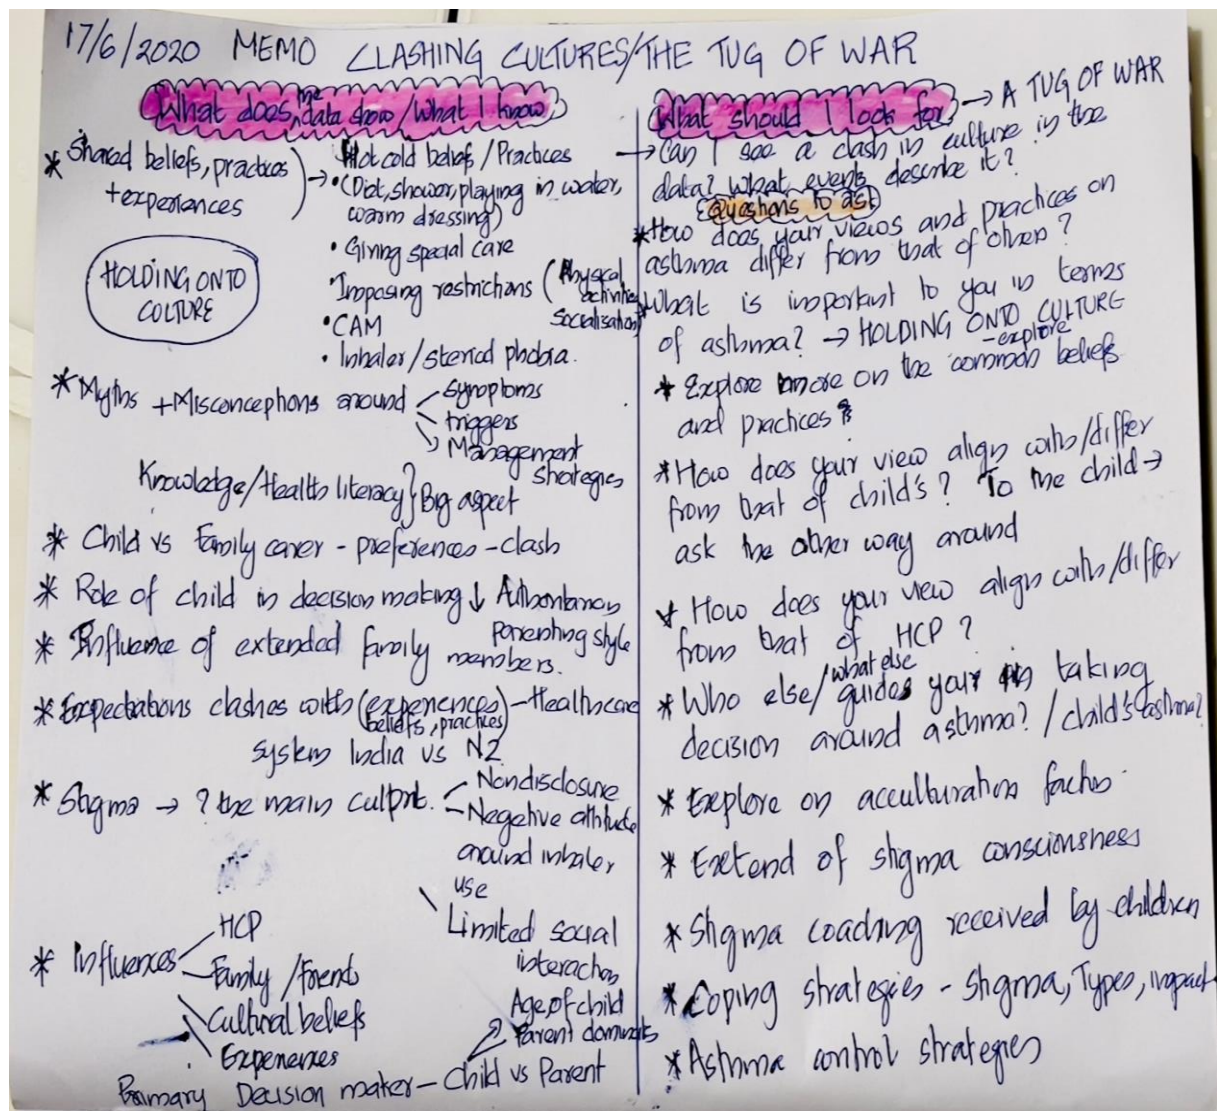 17/6/2020 MEMO CLASHING CULTURES/THE TUG OF WAR
What does the data show/What I know
* Shared beliefs, practices
+experiences
→ Hot cold beliefs/Practices
• (Diet, shower, playing in water,
warm dressing)
• Giving special care
• Imposing restrictions (Physical
activities
socialisation)
• CAM
• Inhaler/steriod phobia.
HOLDING ONTO
CULTURE
* Myths + Misconceptions around
symptoms
triggers
Management
strategies
Knowledge/Health literacy} Big aspect
* Child vs Family carer - preferences - clash
* Role of child in decision making ↓ Authoritarian
parenting style
* Influence of extended family
members.
* Expectations clashes with (experiences) - Healthcare
beliefs, practices
system India vs NZ
* Stigma → ? the main culprit.
Nondisclosure
Negative attitude
around inhaler
use
Limited social
interaction
* Influences
HCP
Family/Friends
Cultural beliefs
Experiences
Age of child
Parent dominates
Primary Decision maker - Child vs Parent
What should I look for → A TUG OF WAR
→ Can I see a clash in culture in the
data? What events describe it?
Questions to ask
* How does your views and practices on
asthma differ from that of others?
* What is important to you in terms
of asthma? → HOLDING ONTO CULTURE
-explore
* Explore more on the common beliefs
and practices?
* How does your view align with/differ
from that of child's? To the child →
ask the other way around
* How does your view align with/differ
from that of HCP?
* Who else/what else guides your in taking
decision around asthma?/child's asthma?
* Explore on acculturation factors
* Extend of stigma consciousness
* Stigma coaching received by children
* Coping strategies - Stigma, Types, impact
* Asthma control strategies